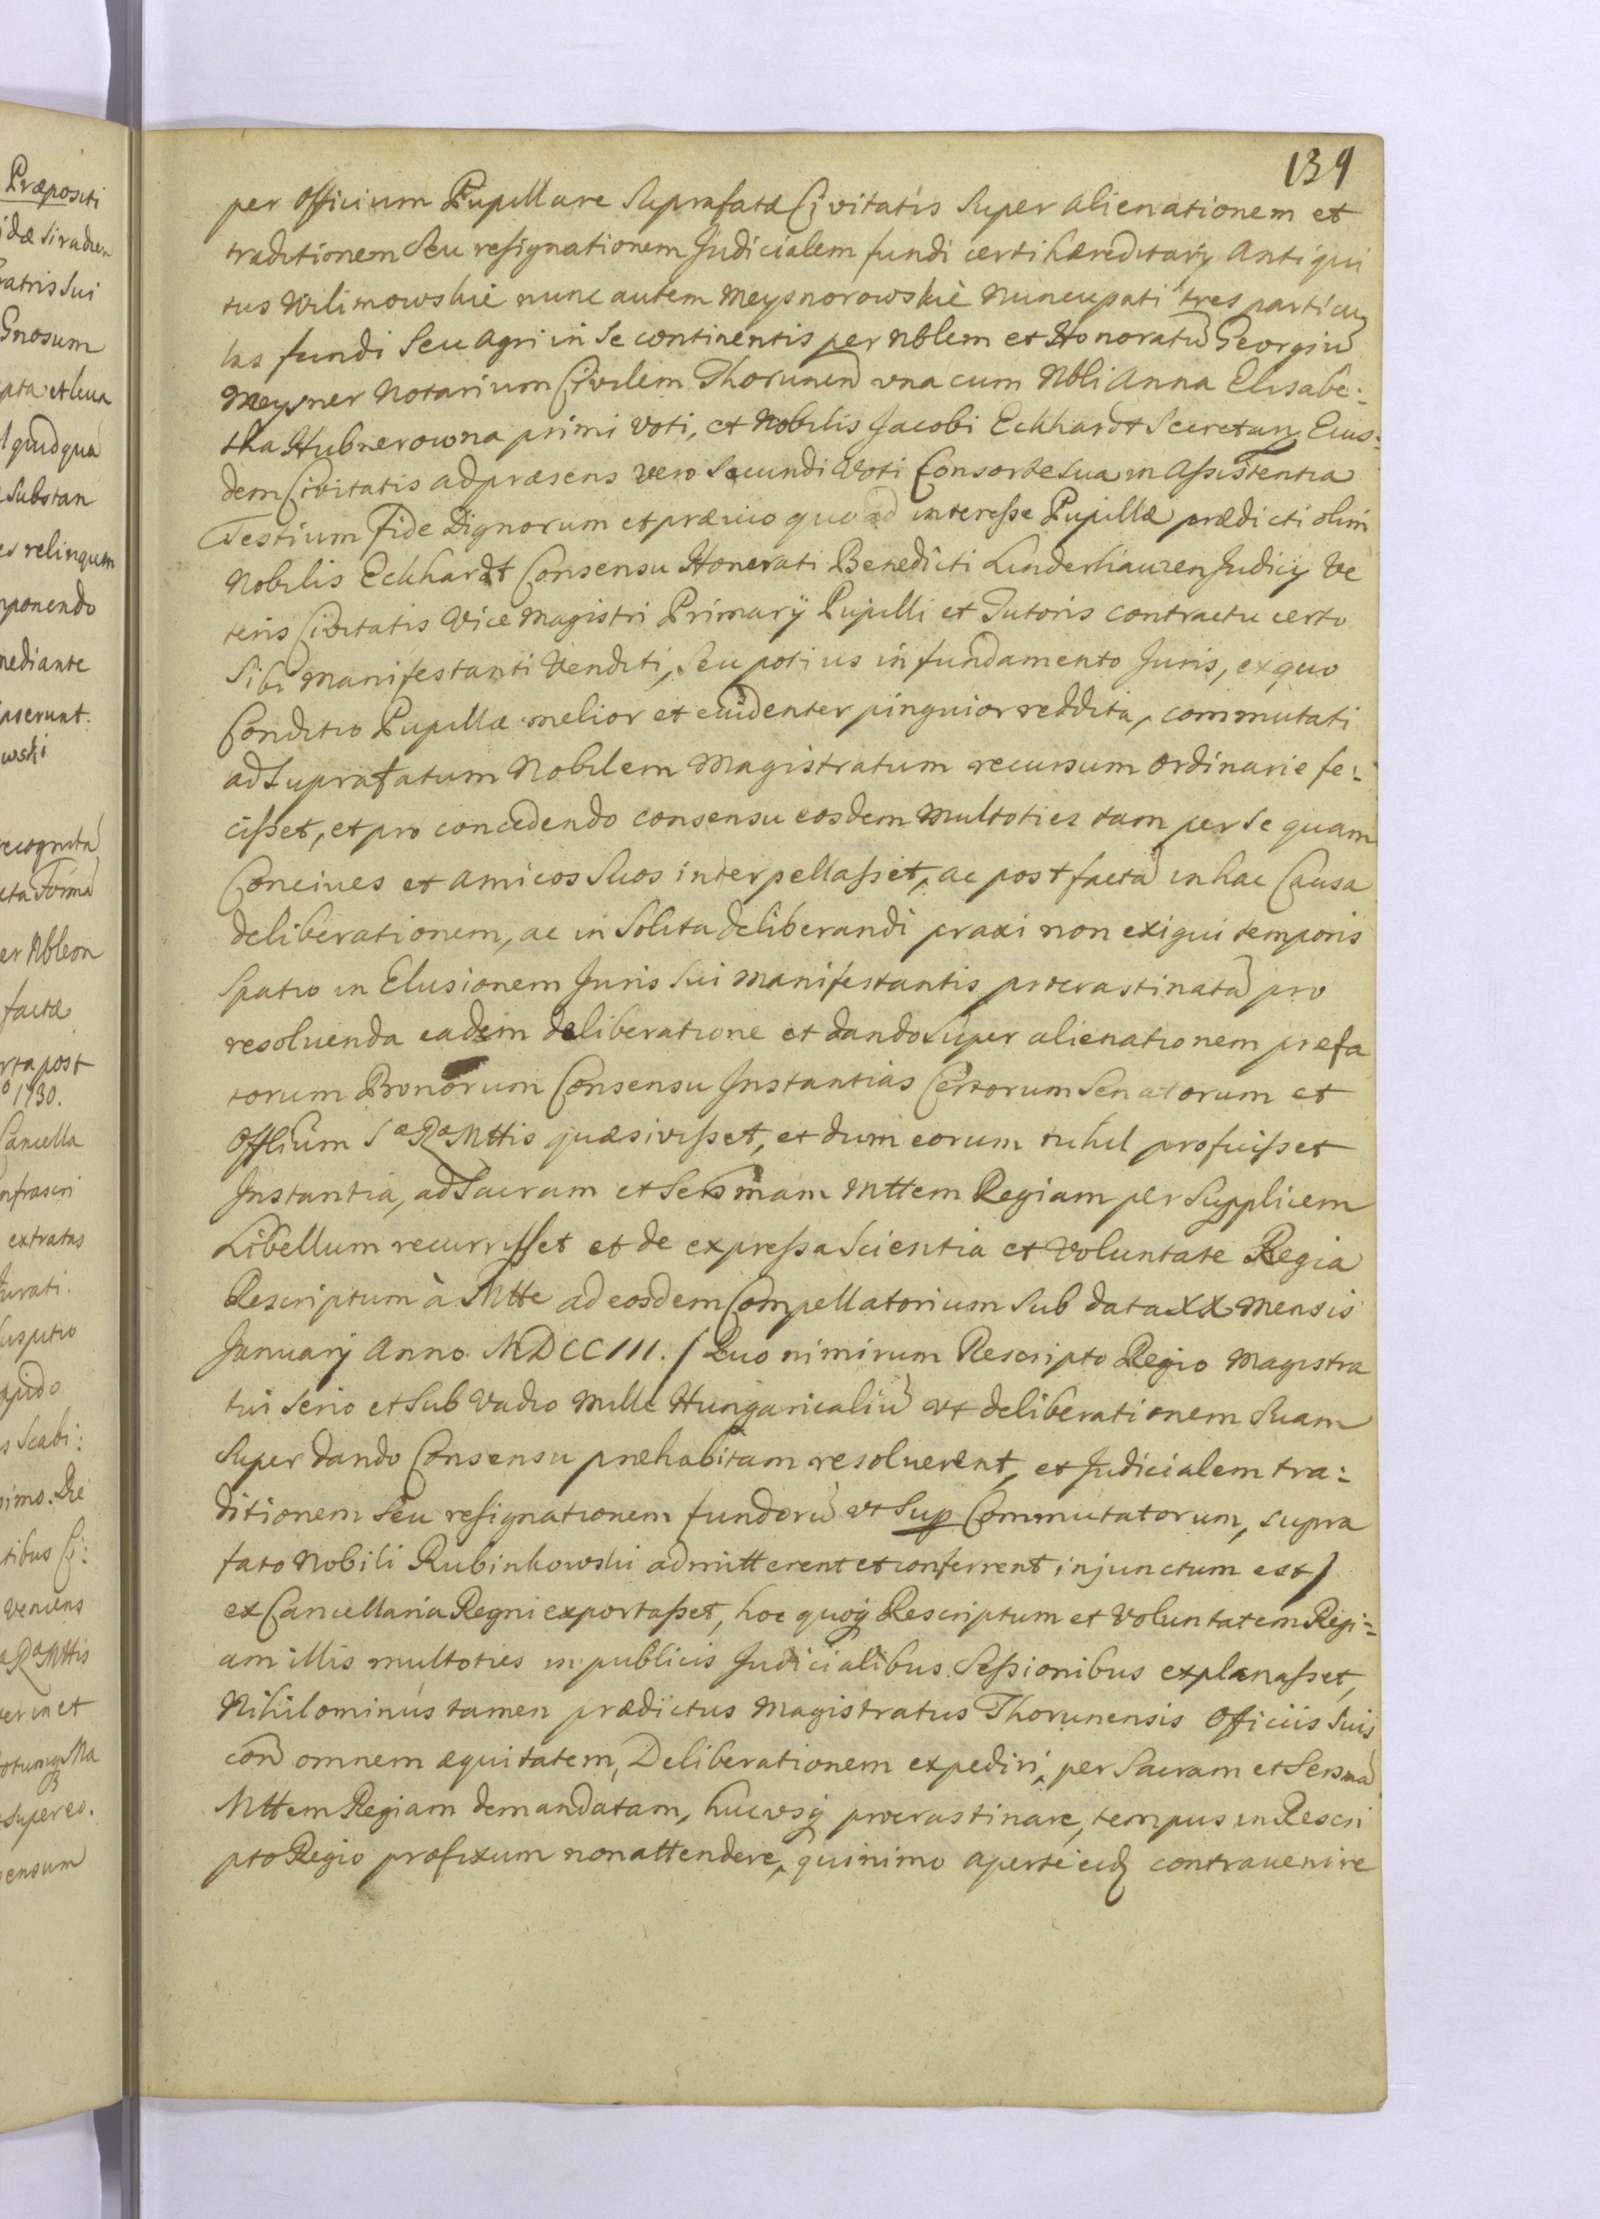 139
per Officium Pupillare Suprafatæ Civitatis Super alienationem et
traditionem Seu resignationem Judicialem fundi certi hæreditarij Antiqui
tus Wilimowskie nunc autem Meysnorowskie Nuncupati tres particu
las fundi Seu agri in Se continentis per Nblem et Honoratū Georgiū
Meysner Notarium Civilem Thorunen una cum Nbli Anna Elisabe:
tha Hubnerowna primi voti, et Nobilis Jacobi Eckhardt Secretarij Eius:
dem Civitatis ad præsens vero Secundi Voti Consorte Sua in Assistentia
Testium Fide Dignorum et prævio quoad interesse Pupillæ prædicti olim
Nobilis Eckhardt Consensu Honorati Benedicti Linderhauzen Judicij Ve
teris Civitatis Vice Magistri Primarij Pupilli et Tutoris contractu certo
Sibi manifestanti Venditi, Seu potius in fundamento Juris, ex quo
Conditio Pupillæ melior et evidenter pinguior reddita, commutati
ad Suprafatum Nobilem Magistratum recursum ordinarie fe:
cisset, et pro concedendo consensu eosdem multoties tam per Se quam
Concives et amicos Suos interpellasset, ac post factā in hac Causa
deliberationem, ac in Solita deliberandi praxi non exigui temporis
Spatio in Elusionem Juris Sui manifestantis procrastinatā pro
resoluenda eadem deliberatione et dando Super alienationem prefa
torum Bonorum Consensu Instantias Certorum Senatorum et
Offlium Sᵃ Rᵃ Mttis quæsivisset, et dum eorum nihil profuisset
Instantia, ad Sacram et Serssmam Mttem Regiam per Supplicem
Libellum recurrisset et de expressa Scientia et Voluntate Regia
Rescriptum à Mtte ad eosdem Compellatorium Sub data XX Mensis
Januarij Anno MDCCIII. / Quo nimirum Rescripto Regio Magistra
tui Serio et Sub Vadio Mille Hungaricaliū ut deliberationem Suam
Super dando Consensu præhabitam resoluerent, et Judicialem tra:
ditionem Seu resignationem fundorū ut Sup Commutatorum, Supra
fato Nobili Rubinkowski admitterent et conferrent injunctum est /
ex Cancellaria Regni exportasset, hoc quoq Rescriptum et Voluntatem Regi=
am illis multoties in publicis Judicialibus Sessionibus explanasset,
Nihilominus tamen prædictus Magistratus Thorunensis Officiis Suis
con omnem æquitatem, Deliberationem expediri, per Sacram et Serssmā
Mttem Regiam demandatam, hucusq procrastinare, tempus in Rescri
pto Regio præfixum non attendere, quinimo aperte eid contravenire